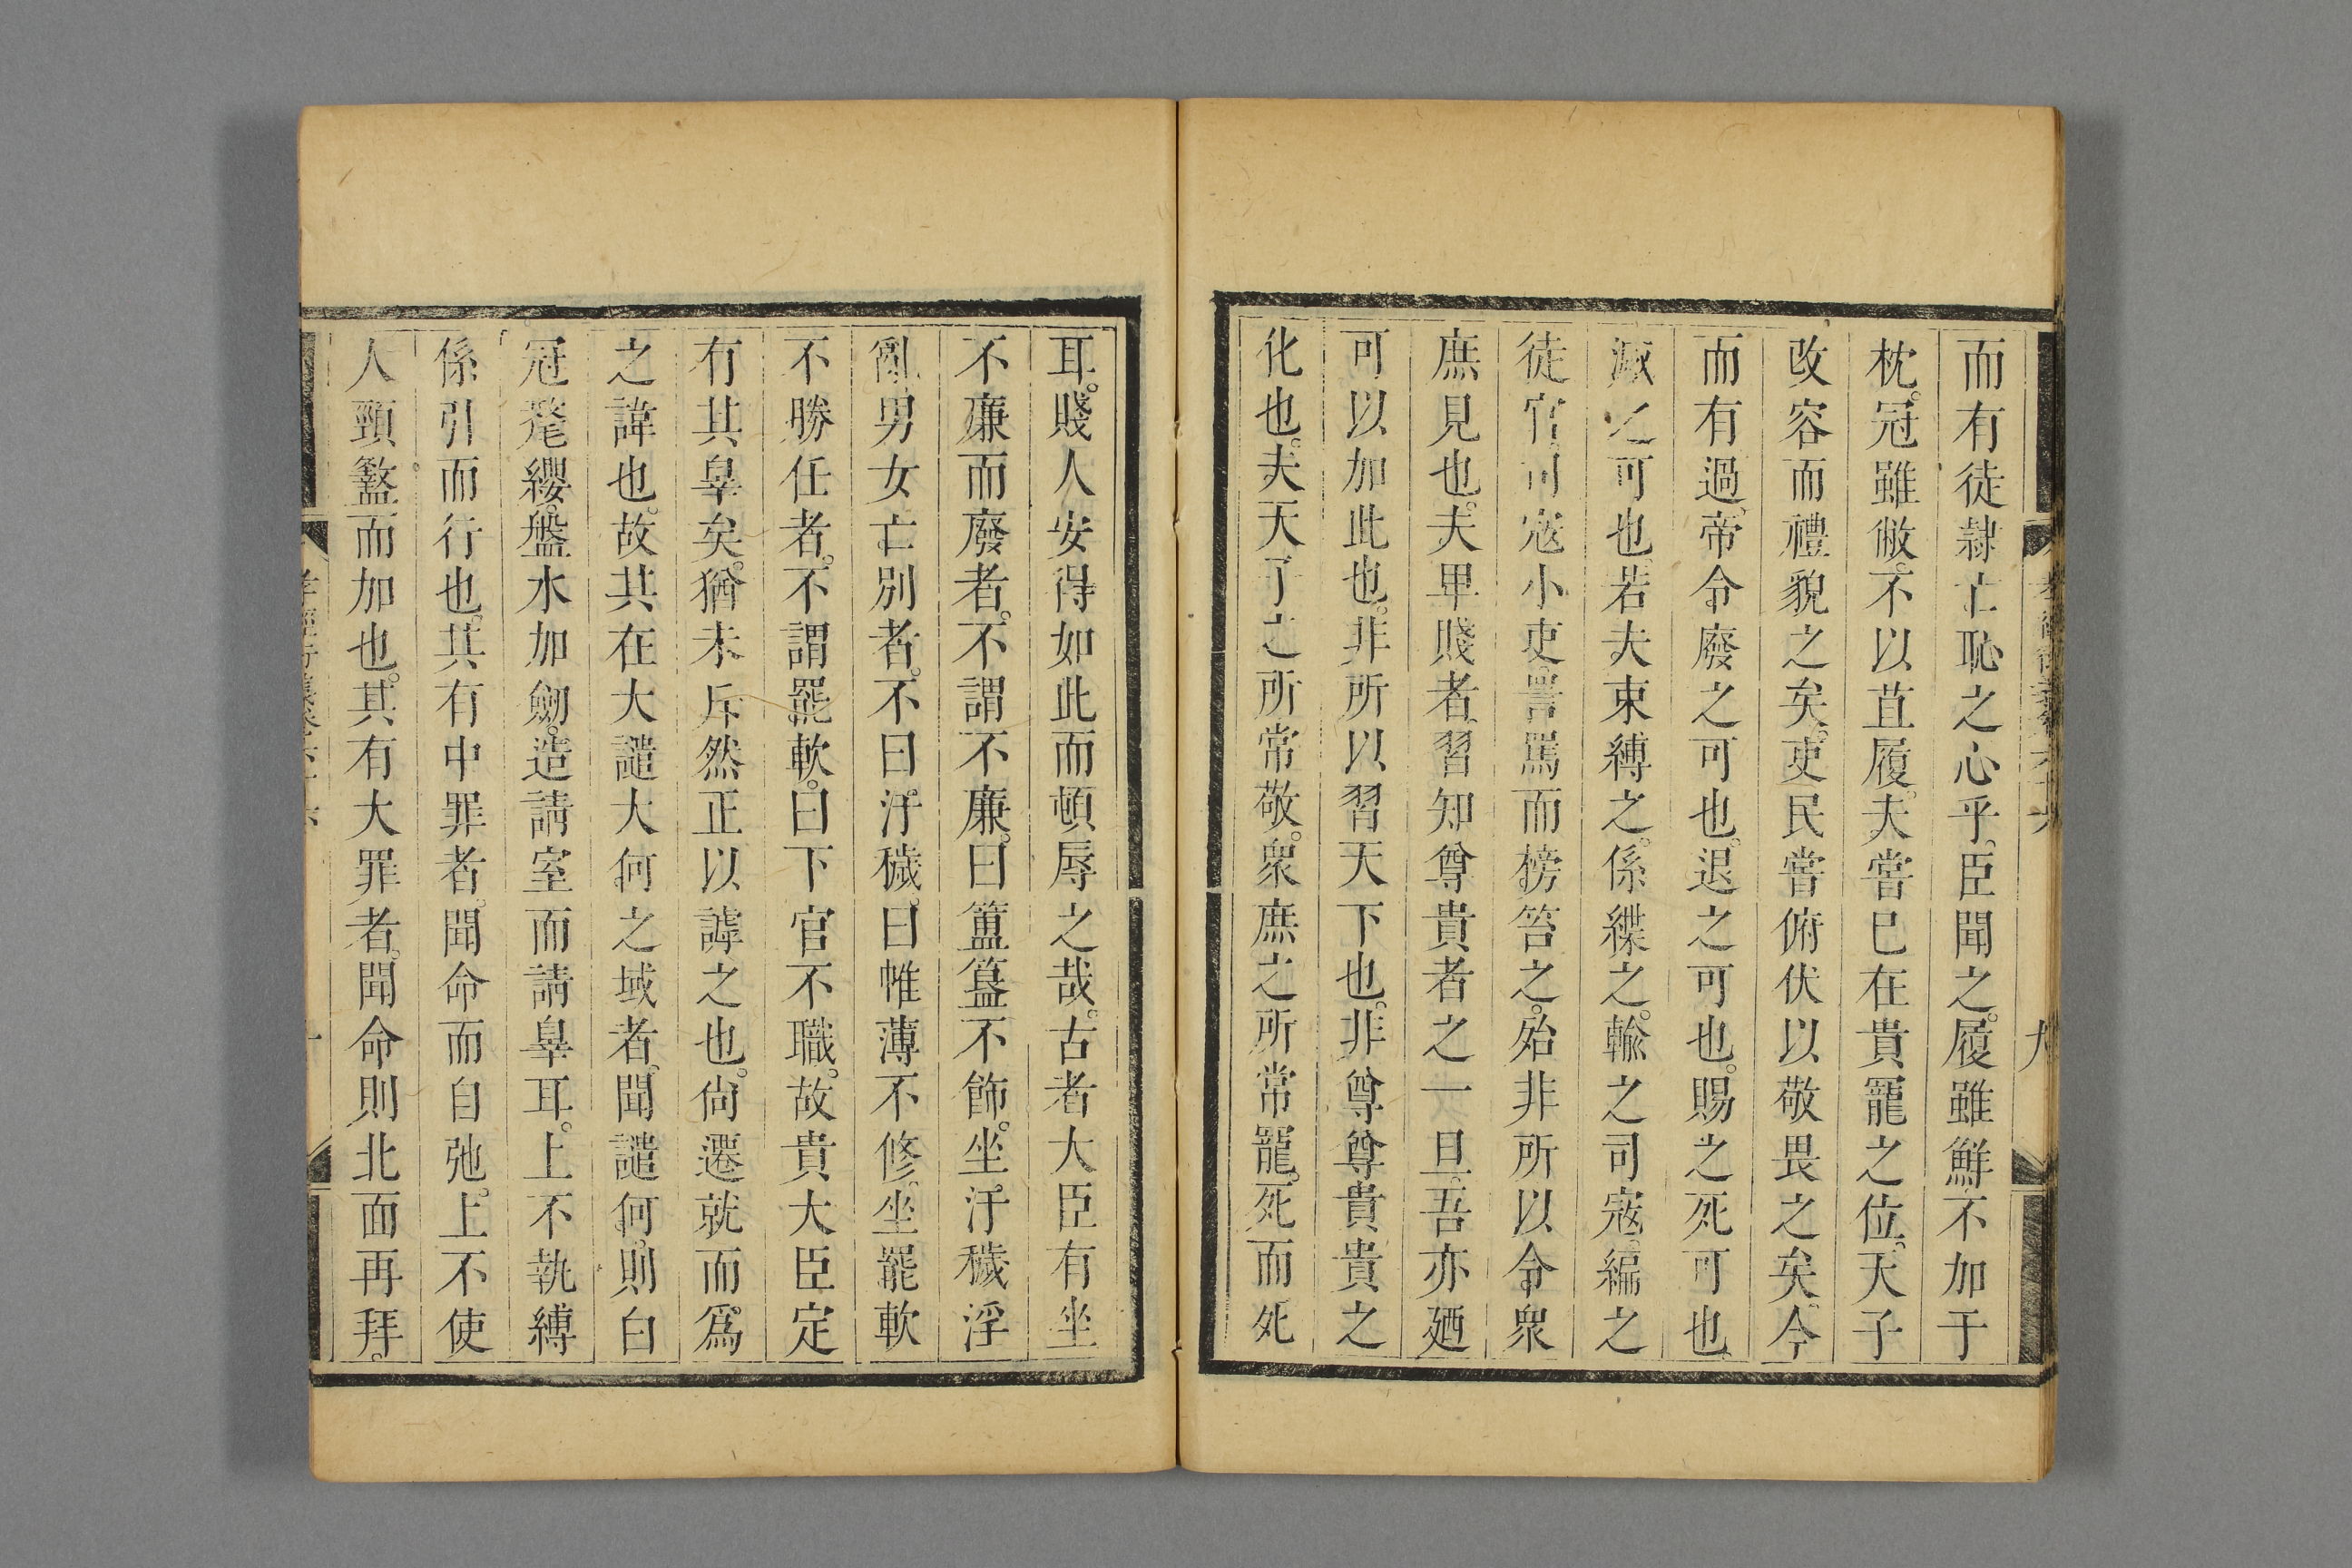 而有徒隷亡恥之心乎。臣聞之。履雖鮮不加于
枕。冠雖敝。不以苴履。夫嘗已在貴寵之位。天子
改容而禮貌之矣。吏民嘗俯伏以敬畏之矣。今
而有過。帝令廢之可也。退之可也。賜之死可也。
滅之可也。若夫束縛之。係緤之。輸之司寇。編之
徒官。司寇小吏。詈罵而榜笞之。殆非所以令衆
庶見也。夫卑賤者。習知尊貴者之一旦。吾亦廼
可以加此也。非所以習天下也。非尊尊貴貴之
化也。夫天子之所常敬。衆庶之所常寵。死而死
耳。賤人安得如此而頓辱之哉。古者大臣有坐
不廉而廢者。不謂不廉。曰簠簋不飾。坐汙穢淫
亂男女亡別者。不曰汙穢。曰帷薄不修。坐罷軟
不勝任者。不謂罷軟。曰下官不職。故貴大臣定
有其辠矣。猶未斥然正以謼之也。尙遷就而爲
之諱也。故其在大譴大何之域者。聞譴何。則白
冠氂纓。盤水加劒。造請室而請辠耳。上不執縛
係引而行也。其有中罪者。聞命而自弛。上不使
人頸盭而加也。其有大罪者。聞命則北面再拜。